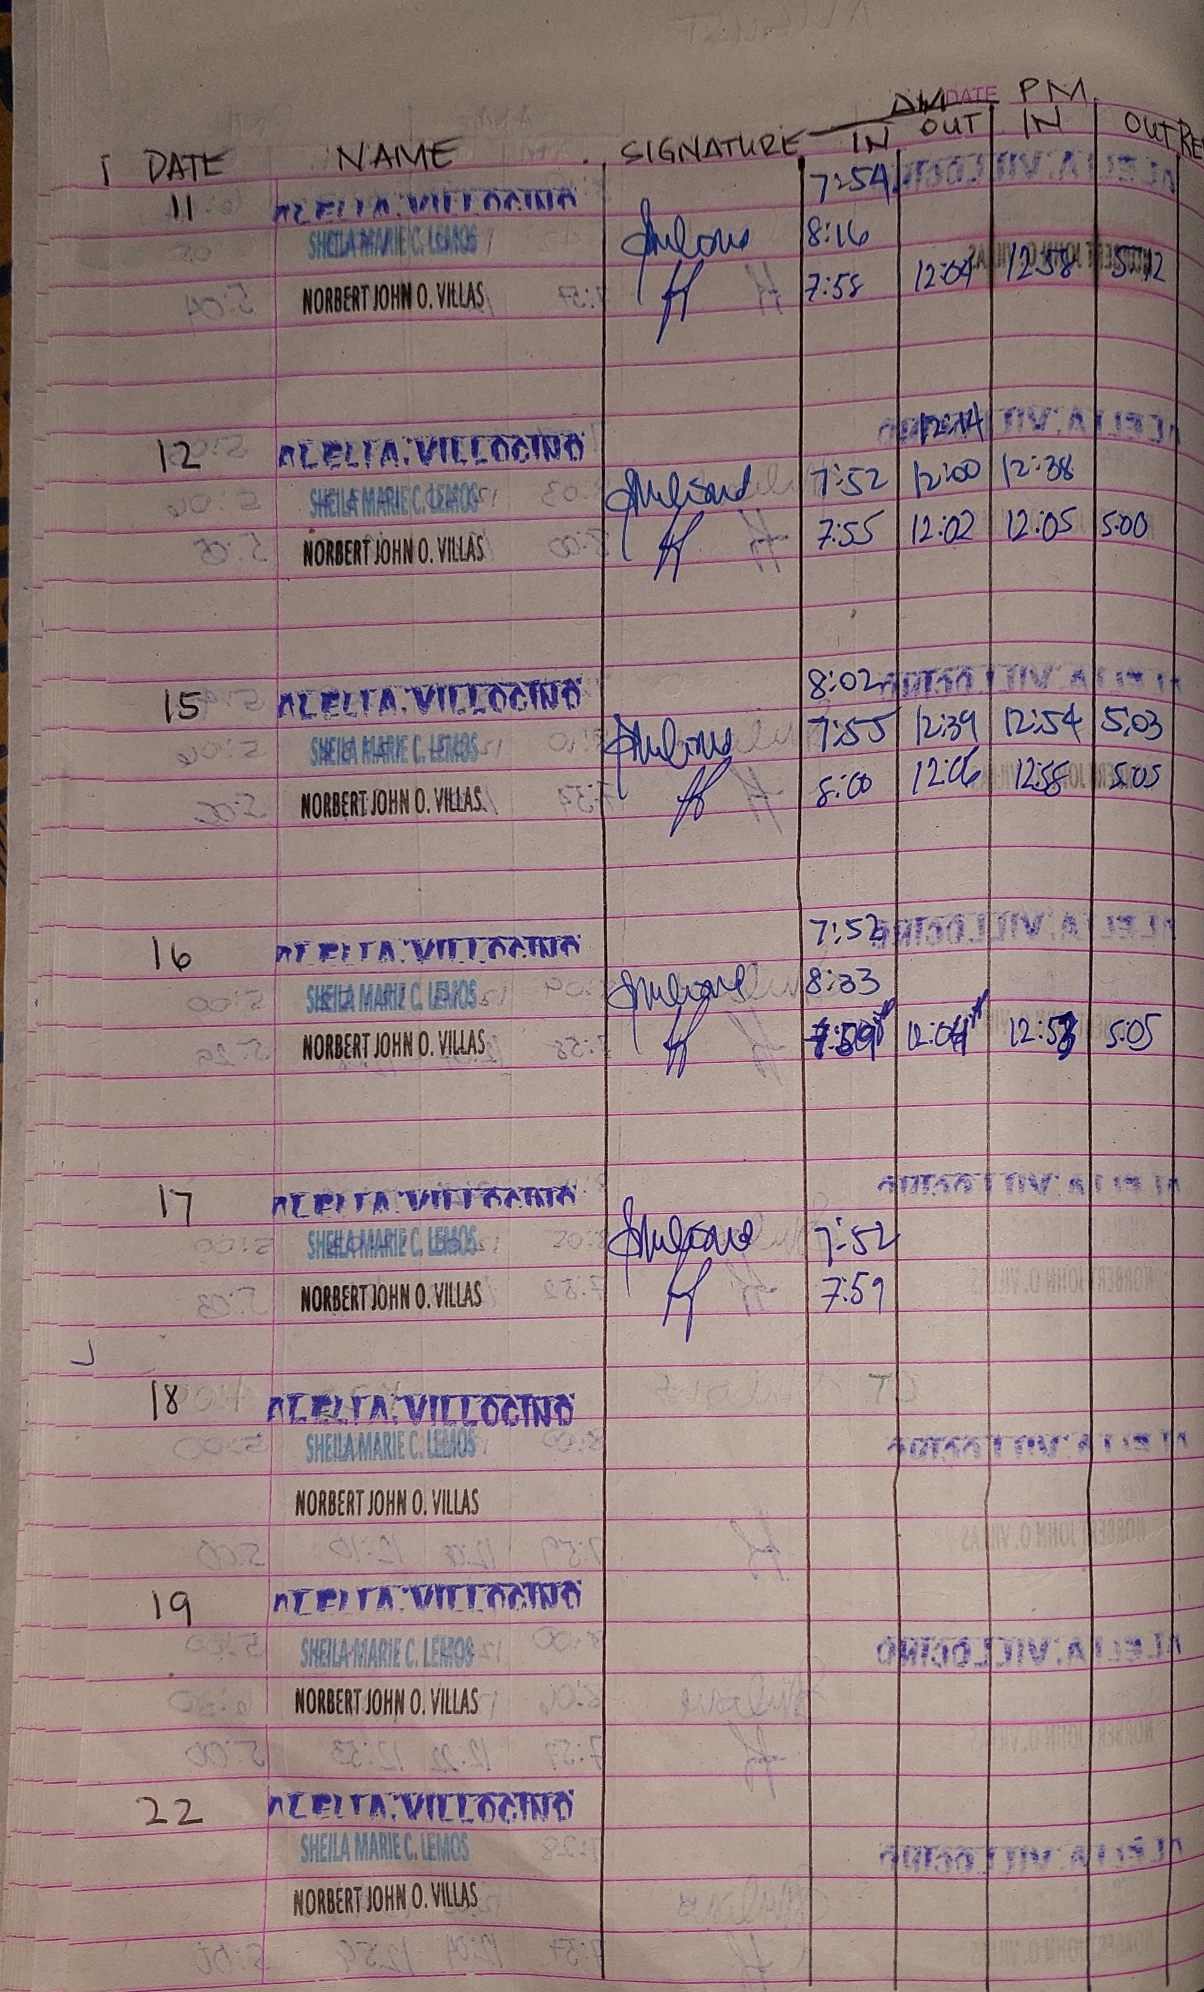 AM DATE PM
DATE NAME SIGNATURE IN OUT IN OUT RE
11 ALELI A. VILLOCINO 7:54
SHEILA MARIE C. LEMOS 8:16
NORBERT JOHN O. VILLAS 7:58 12:04 12:58 5:12
12 ALELI A. VILLOCINO 12:14
SHEILA MARIE C. LEMOS 7:52 12:00 12:38
NORBERT JOHN O. VILLAS 7:55 12:02 12:05 5:00
15 ALELI A. VILLOCINO 8:02
SHEILA MARIE C. LEMOS 7:55 12:39 12:54 5:03
NORBERT JOHN O. VILLAS 8:00 12:06 12:58 5:05
16 ALELI A. VILLOCINO 7:52
SHEILA MARIE C. LEMOS 8:33
NORBERT JOHN O. VILLAS 7:59 12:04 5:05
17 ALELI A. VILLOCINO
SHEILA MARIE C. LEMOS 7:52
NORBERT JOHN O. VILLAS 7:59
18 ALELI A. VILLOCINO
SHEILA MARIE C. LEMOS
NORBERT JOHN O. VILLAS
19 ALELI A. VILLOCINO
SHEILA MARIE C. LEMOS
NORBERT JOHN O. VILLAS
22 ALELI A. VILLOCINO
SHEILA MARIE C. LEMOS
NORBERT JOHN O. VILLAS